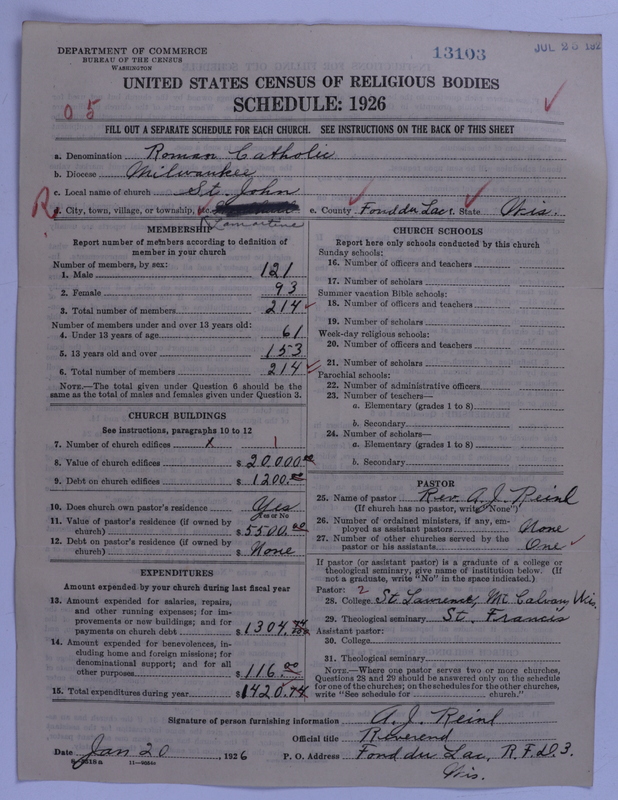 DEPARTMENT OF COMMERCE
BUREAU OF THE CENSUS
WASHINGTON
13103
JUL 23 192
UNITED STATES CENSUS OF RELIGIOUS BODIES
SCHEDULE: 1926
0 5
FILL OUT A SEPARATE SCHEDULE FOR EACH CHURCH. SEE INSTRUCTIONS ON THE BACK OF THIS SHEET
a. Denomination Roman Catholic
b. Diocese Milwaukee
c. Local name of church St. John
R
d. City, town, village, or township, etc. Lamartine e. County Fond du Lac f. State Wis.
MEMBERSHIP
Report number of members according to definition of
member in your church
Number of members, by sex:
1. Male 121
2. Female 93
3. Total number of members 214
Number of members under and over 13 years old:
4. Under 13 years of age 61
5. 13 years old and over 153
6. Total number of members 214
NOTE.—The total given under Question 6 should be the
same as the total of males and females given under Question 3.
CHURCH BUILDINGS
See instructions, paragraphs 10 to 12
7. Number of church edifices 1
8. Value of church edifices $ 20,000.00
9. Debt on church edifices $ 1200.00
10. Does church own pastor's residence Yes
Yes or No
11. Value of pastor's residence (if owned by
church) $ 5500.00
12. Debt on pastor's residence (if owned by
church) $ None
EXPENDITURES
Amount expended by your church during last fiscal year
13. Amount expended for salaries, repairs,
and other running expenses; for im-
provements or new buildings; and for
payments on church debt $ 1304.74
14. Amount expended for benevolences, in-
cluding home and foreign missions; for
denominational support; and for all
other purposes $ 116.00
15. Total expenditures during year $ 1420.74
CHURCH SCHOOLS
Report here only schools conducted by this church
Sunday schools:
16. Number of officers and teachers
17. Number of scholars
Summer vacation Bible schools:
18. Number of officers and teachers
19. Number of scholars
Week-day religious schools:
20. Number of officers and teachers
21. Number of scholars
Parochial schools:
22. Number of administrative officers
23. Number of teachers—
a. Elementary (grades 1 to 8)
b. Secondary
24. Number of scholars—
a. Elementary (grades 1 to 8)
b. Secondary
PASTOR
25. Name of pastor Rev. A. J. Reinl
(If church has no pastor, write "None")
26. Number of ordained ministers, if any, em-
ployed as assistant pastors None
27. Number of other churches served by the
pastor or his assistants One
If pastor (or assistant pastor) is a graduate of a college or
theological seminary, give name of institution below. (If
not a graduate, write "No" in the space indicated.)
Pastor: 2
28. College St Lawrence, Mt Calvary, Wis.
29. Theological seminary St. Francis
Assistant pastor:
30. College
31. Theological seminary
NOTE.—Where one pastor serves two or more churches,
Questions 28 and 29 should be answered only on the schedule
for one of the churches; on the schedules for the other churches,
write "See schedule for church."
Signature of person furnishing information A. J. Reinl
Official title Reverend
Date Jan 20, 1926 P. O. Address Fond du Lac, R.F.D. 3.
Wis.